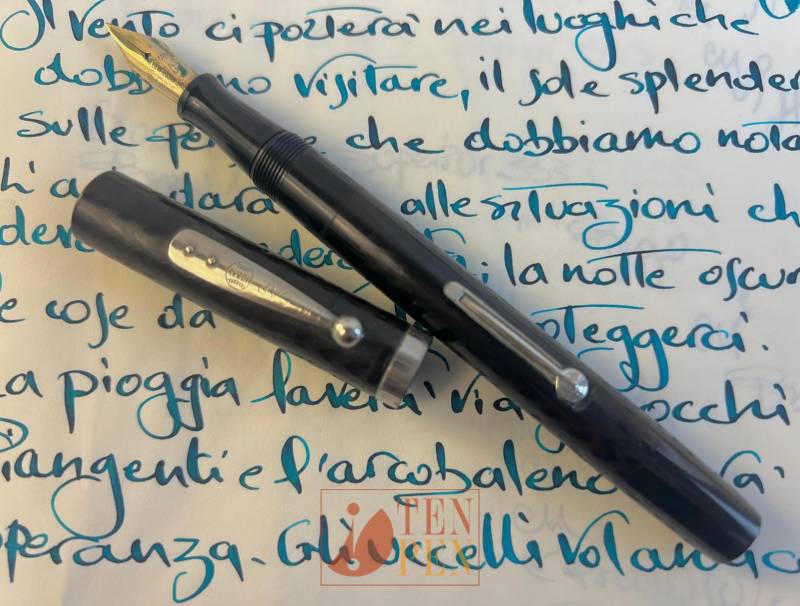 Il vento ci porterà nei luoghi che
dobbiamo visitare, il sole splender
sulle per e che dobbiamo nota
alle situazioni ch
la notte oscur
e cose da oteggerci.
a pioggia laverà via occhi
iangenti e l'arcobaleno rà
speranza. Gli uccelli volan
TEN
PEN